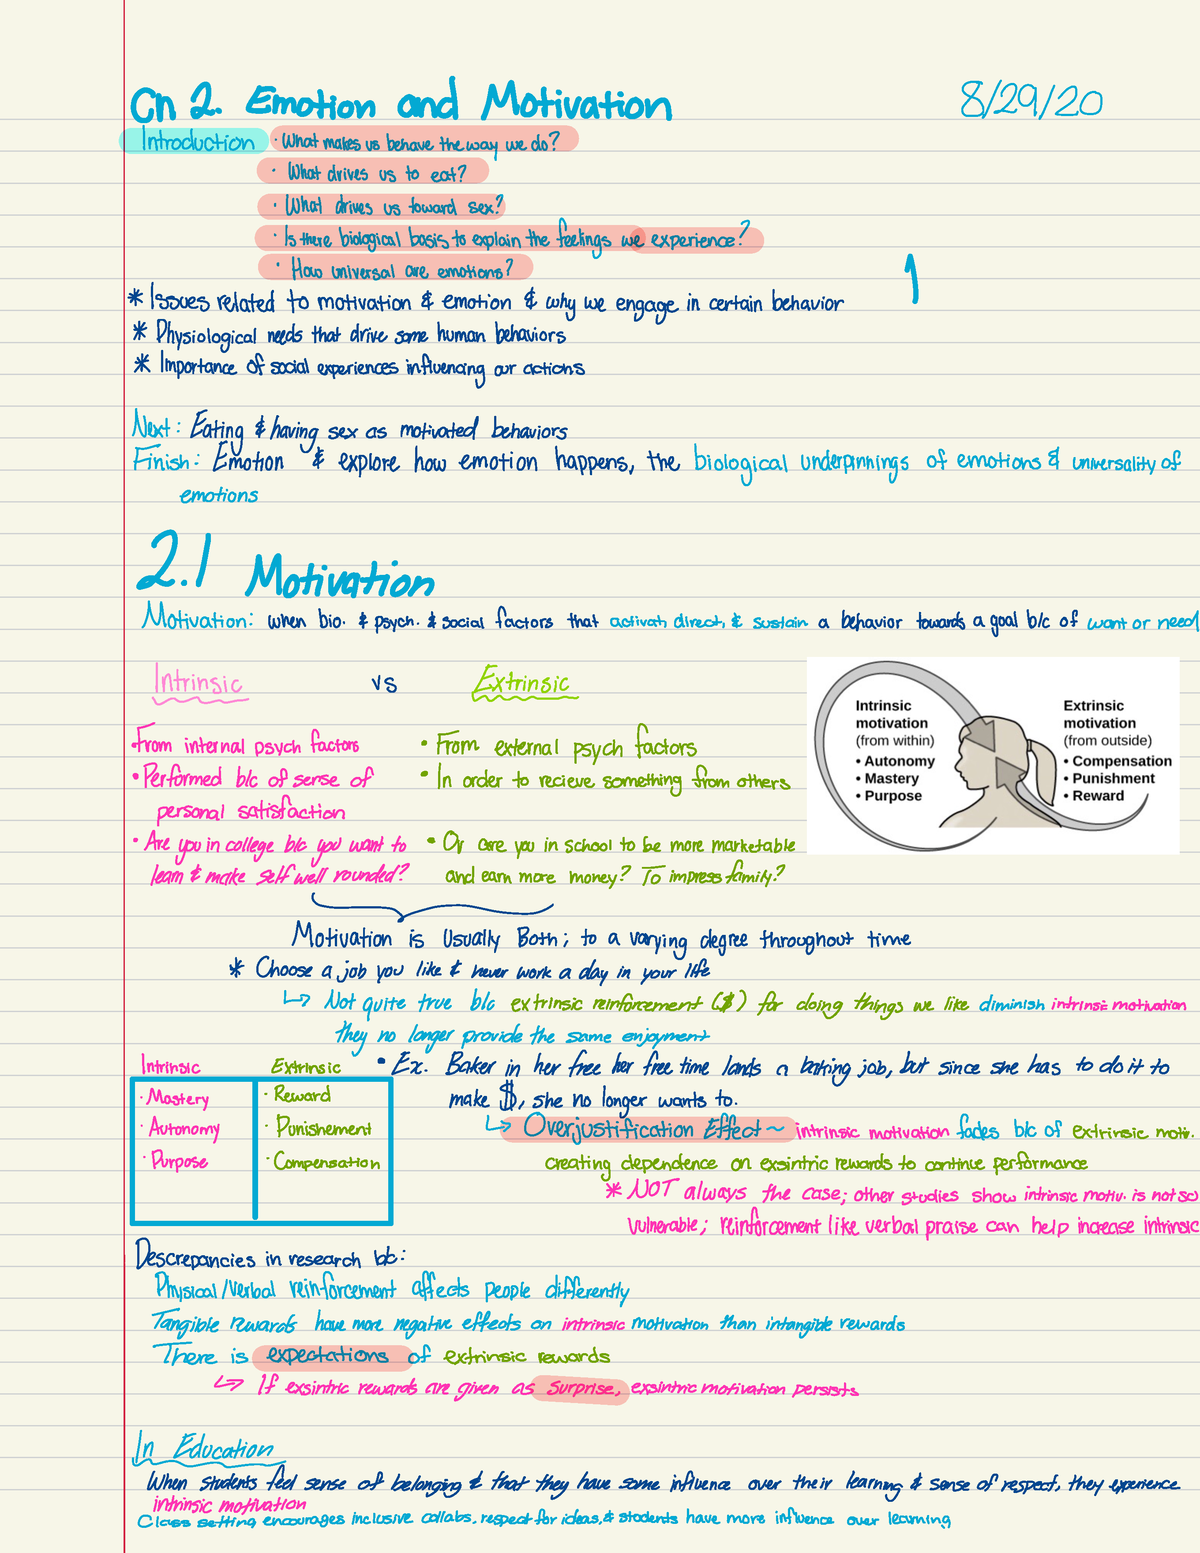 Ch 2. Emotion and Motivation 8/29/20
Introduction · What makes us behave the way we do?
· What drives us to eat?
· What drives us toward sex?
· Is there biological basis to explain the feelings we experience?
· How universal are emotions?
1
* Issues related to motivation & emotion & why we engage in certain behavior
* Physiological needs that drive some human behaviors
* Importance of social experiences influencing our actions
Next: Eating & having sex as motivated behaviors
Finish: Emotion & explore how emotion happens, the biological underpinnings of emotions & universality of
emotions
2.1 Motivation
Motivation: when bio. & psych. & social factors that activate, direct, & sustain a behavior towards a goal b/c of want or need
Intrinsic vs Extrinsic
· From internal psych factors
• Performed b/c of sense of
personal satisfaction
• Are you in college b/c you want to
learn & make self well rounded?
• From external psych factors
• In order to recieve something from others
• Or are you in school to be more marketable
and earn more money? To impress family?
Intrinsic
motivation
(from within)
• Autonomy
• Mastery
• Purpose
Extrinsic
motivation
(from outside)
• Compensation
• Punishment
• Reward
Motivation is Usually Both; to a varying degree throughout time
* Choose a job you like & never work a day in your life
↳ Not quite true b/c extrinsic reinforcement ($) for doing things we like diminish intrinsic motivation
they no longer provide the same enjoyment
• Ex. Baker in her free her free time lands a baking job, but since she has to do it to
make $, she no longer wants to.
↳ Overjustification Effect ~ intrinsic motivation fades b/c of extrinsic motiv.
creating dependence on exsintric rewards to continue performance
* NOT always the case; other studies show intrinsic motiv. is not so
vulnerable; reinforcement like verbal praise can help increase intrinsic
Intrinsic Extrinsic
· Mastery · Reward
· Autonomy · Punishement
· Purpose · Compensation
Descrepancies in research b/c:
Physical/verbal reinforcement affects people differently
Tangible rewards have more negative effects on intrinsic motivation than intangible rewards
There is expectations of extrinsic rewards
↳ If exsintric rewards are given as surprise, exsintric motivation persists
In Education
When students feel sense of belonging & that they have some influence over their learning & sense of respect, they experience
intrinsic motivation
Class setting encourages inclusive collabs, respect for ideas, & students have more influence over learning